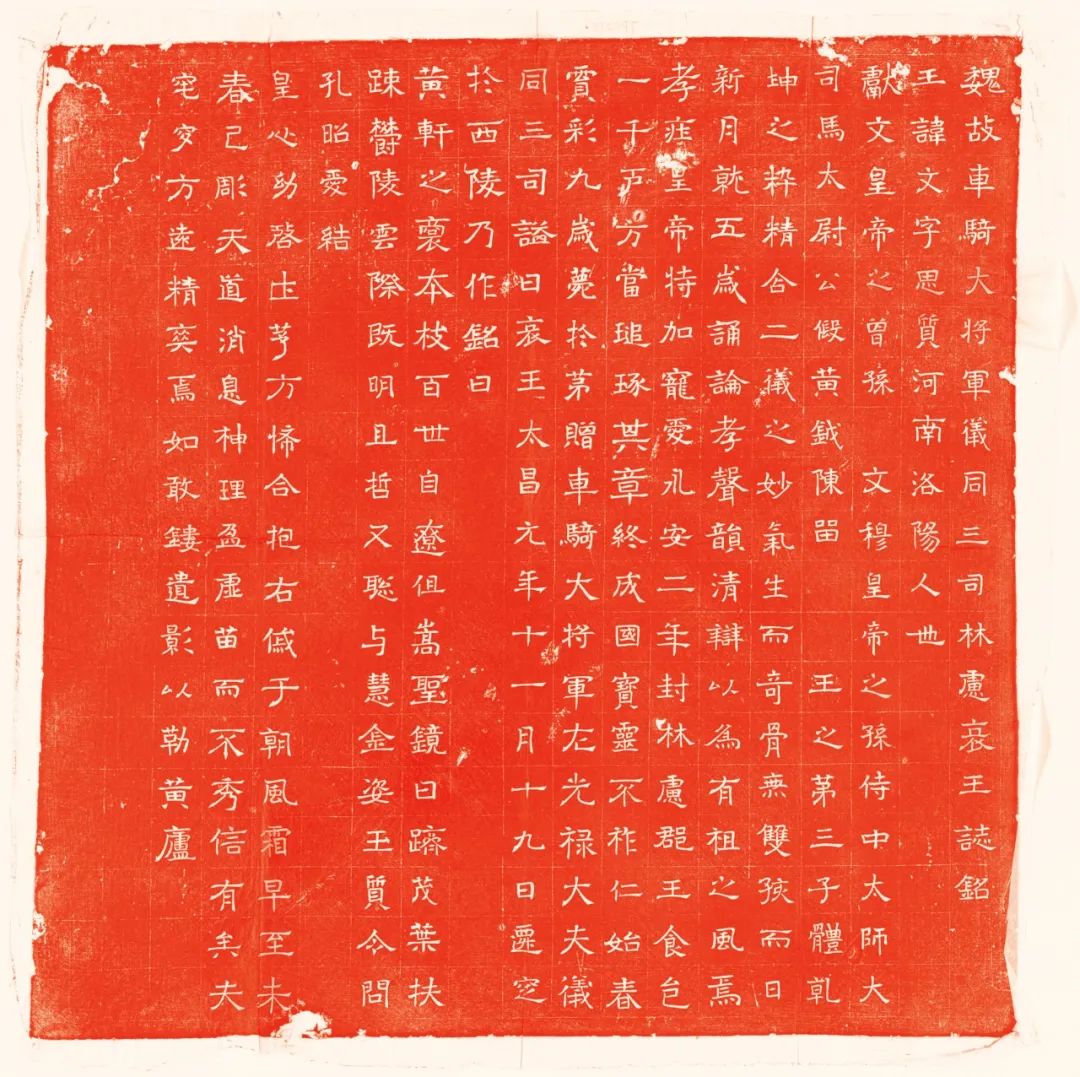 魏故車騎大將軍儀同三司林慮哀王誌銘
王諱文字思質河南洛陽人也
獻文皇帝之曾孫 文穆皇帝之孫侍中太師大
司馬太尉公假黃鉞陳留 王之第三子體乹
坤之粋精含二儀之妙氣生而奇骨無雙孩而日
新月就五歲誦論孝聲韻清辯以為有祖之風焉
孝莊皇帝特加寵愛永安二年封林慮郡王食邑
一千戶方當琢其章終成國寶靈不祚仁始春
賓彩九歲薨於第贈車騎大將軍左光祿大夫儀
同三司謚曰哀王太昌元年十一月十九日遷窆
於西陵乃作銘曰
黃軒之裔本枝百世自遼徂嵩聖鏡日躋茂葉扶
疎欝陵雲際既明且哲又聡与慧金姿玉質令問
孔昭愛結
皇心幼啓土茅方悕合抱右戚于朝風霜早至未
春已彫天道消息神理盈虛苗而不秀信有矣夫
窀穸方遠精爽焉如敢鏤遺影以勒黃廬